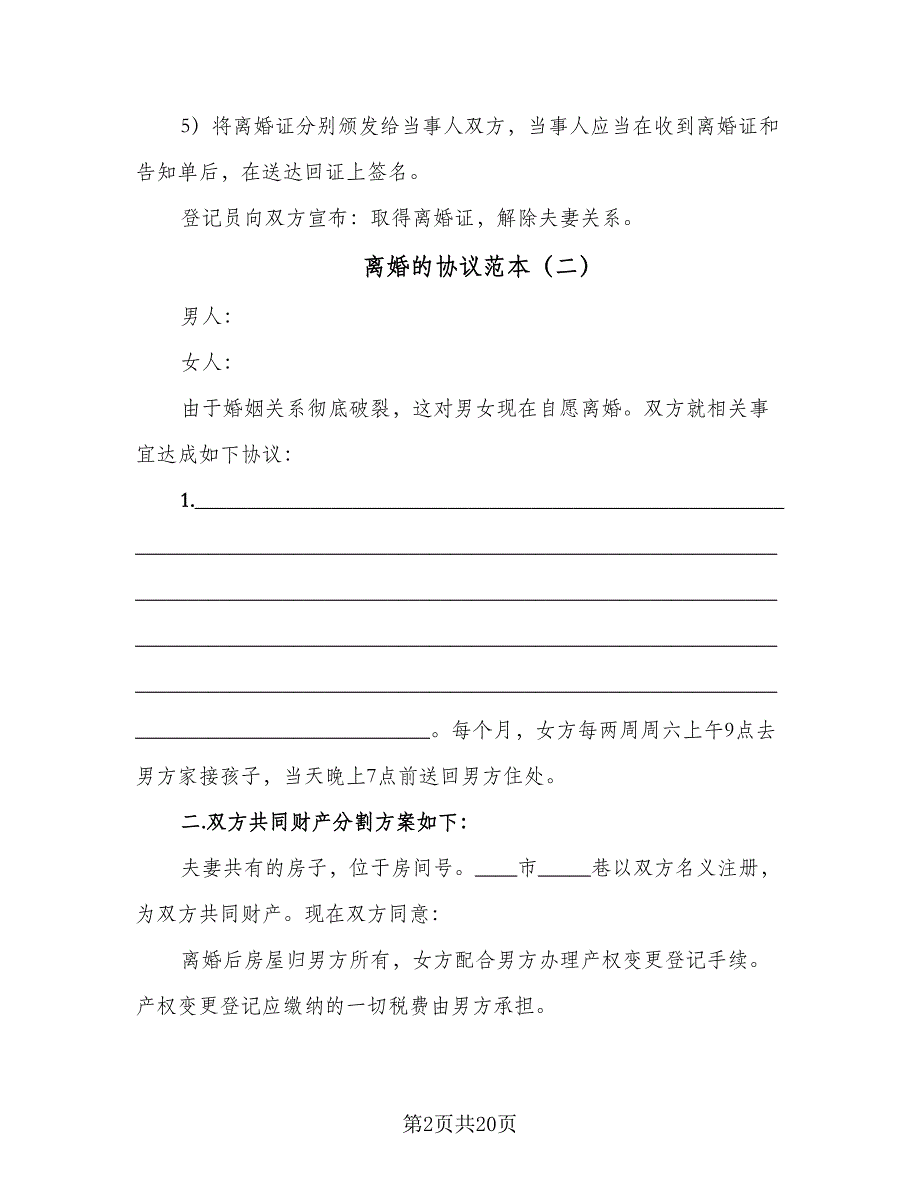 5）将离婚证分别颁发给当事人双方，当事人应当在收到离婚证和
告知单后，在送达回证上签名。
登记员向双方宣布：取得离婚证，解除夫妻关系。
离婚的协议范本（二）
男人：
女人：
由于婚姻关系彻底破裂，这对男女现在自愿离婚。双方就相关事
宜达成如下协议：
1.________________________________________________________
_____________________________________________________________
_____________________________________________________________
_____________________________________________________________
_____________________________________________________________
____________________________。每个月，女方每两周周六上午9点去
男方家接孩子，当天晚上7点前送回男方住处。
二.双方共同财产分割方案如下：
夫妻共有的房子，位于房间号。____市_____巷以双方名义注册，
为双方共同财产。现在双方同意：
离婚后房屋归男方所有，女方配合男方办理产权变更登记手续。
产权变更登记应缴纳的一切税费由男方承担。
第2页共20页